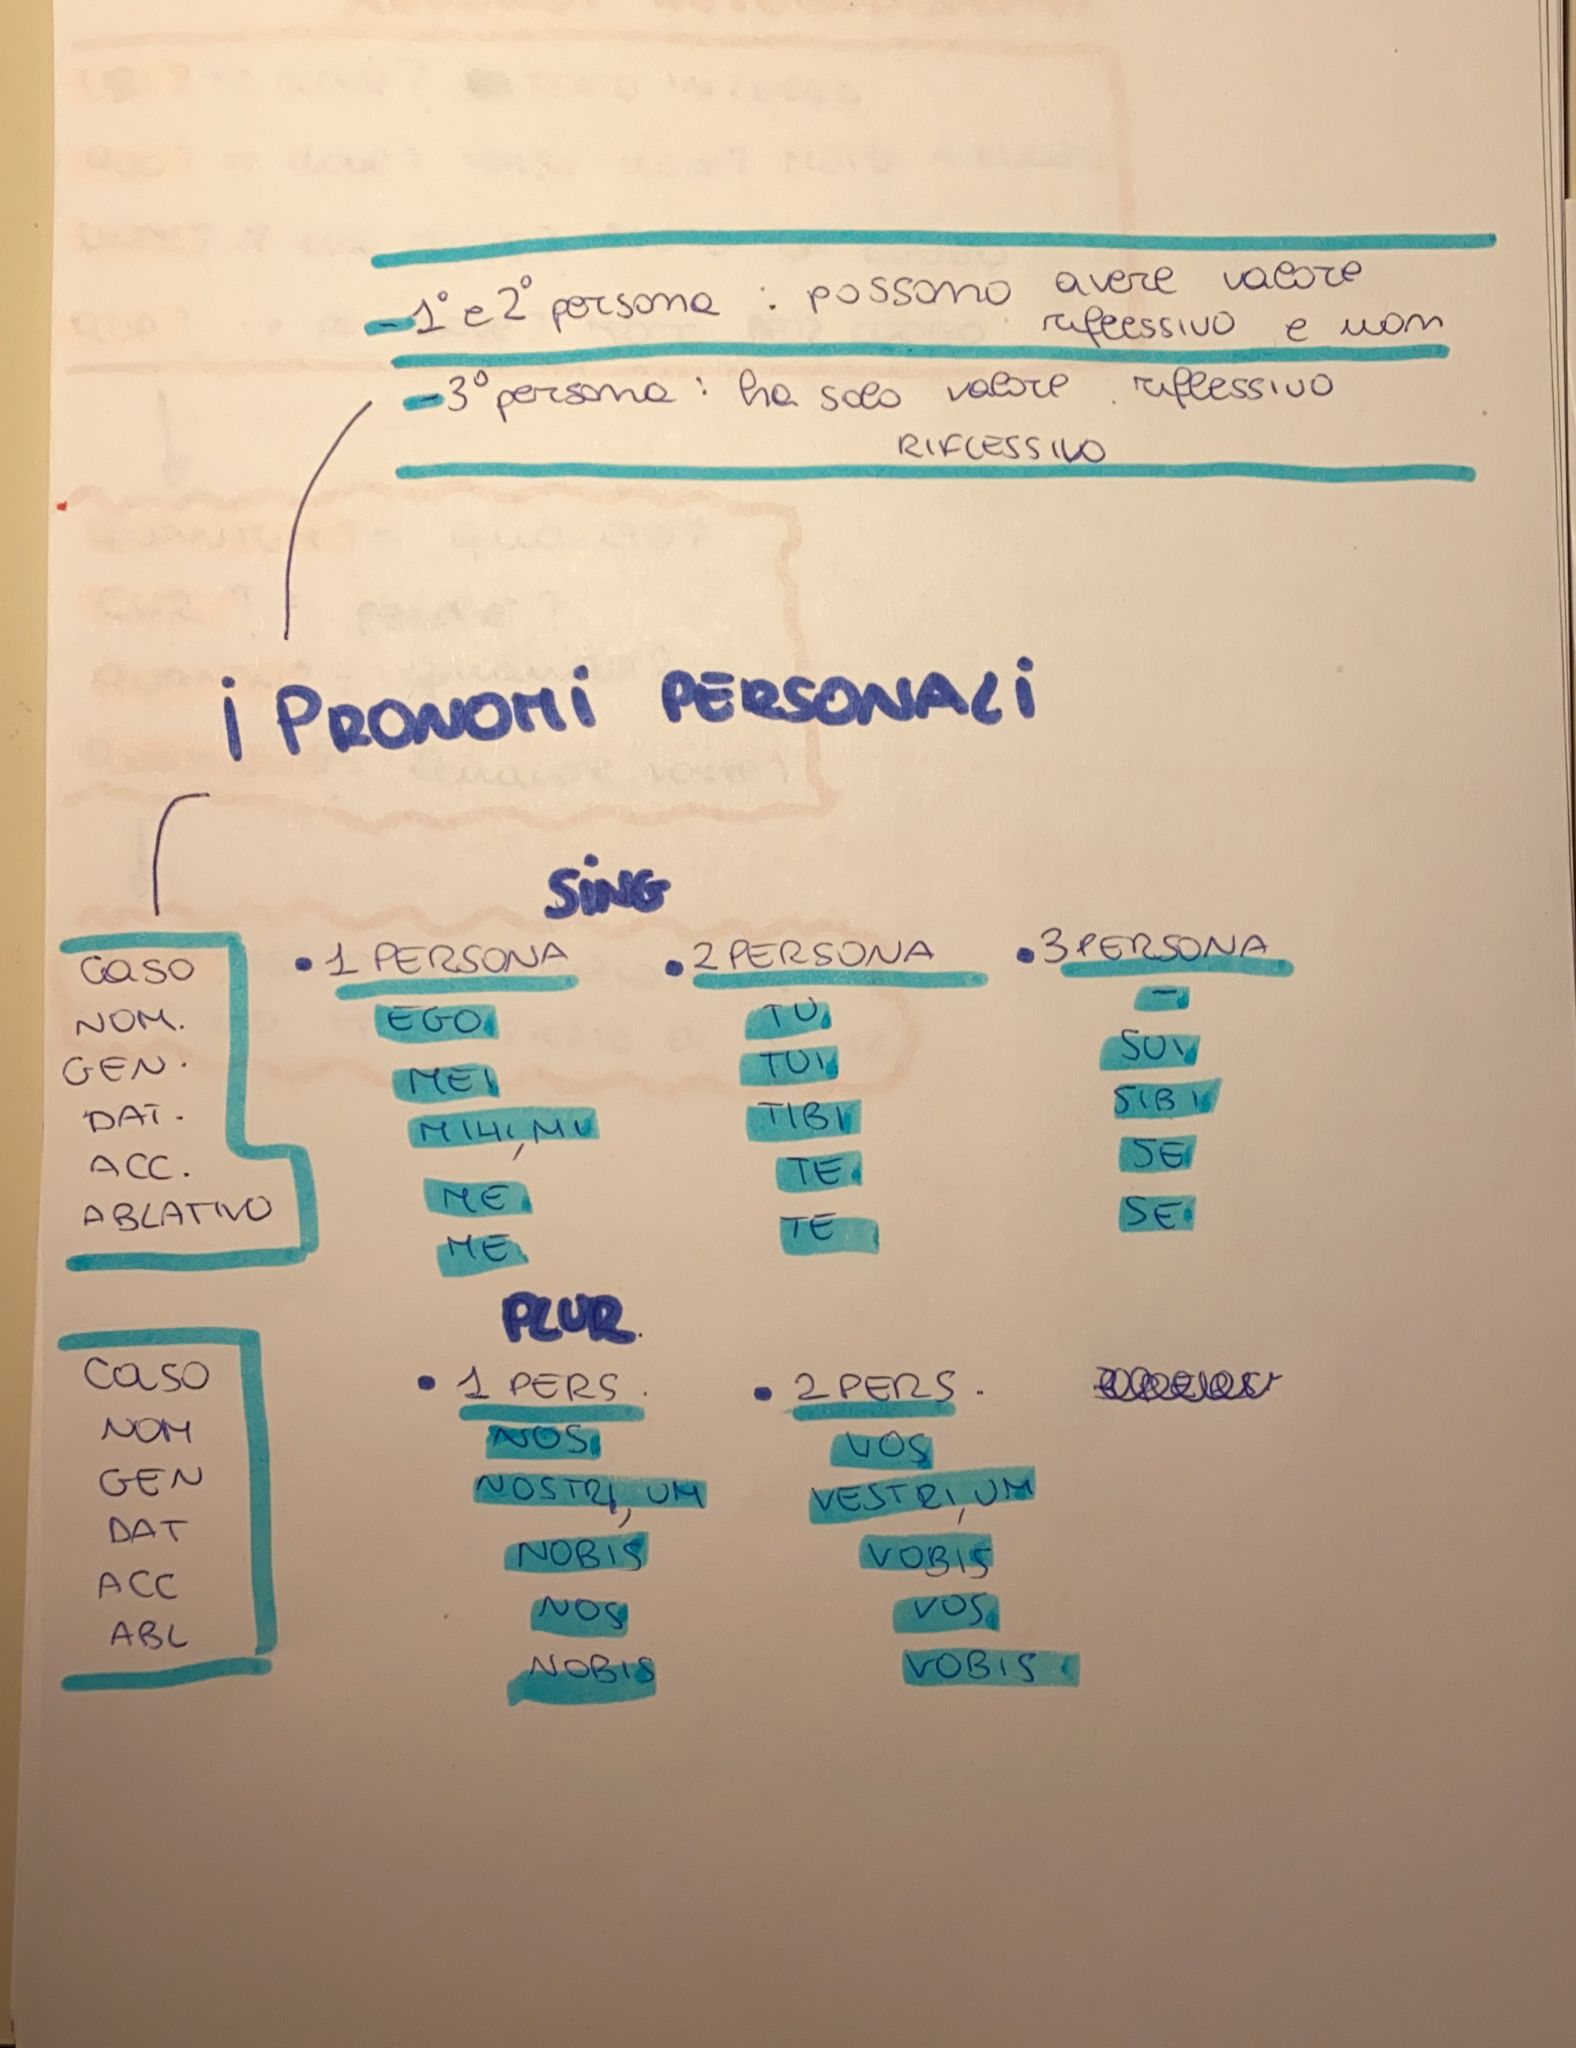 - 1° e 2° persona : possono avere valore
riflessivo e non
- 3° persona : ha solo valore riflessivo
RIFLESSIVO
i PRONOMI PERSONALI
SING
CASO • 1 PERSONA • 2 PERSONA • 3 PERSONA
NOM. EGO TU -
GEN. MEI TUI SUI
DAT. MIHI, MI TIBI SIBI
ACC. ME TE SE
ABLATIVO ME TE SE
PLUR.
CASO • 1 PERS. • 2 PERS.
NOM NOS VOS
GEN NOSTRI, UM VESTRI, UM
DAT NOBIS VOBIS
ACC NOS VOS
ABL NOBIS VOBIS